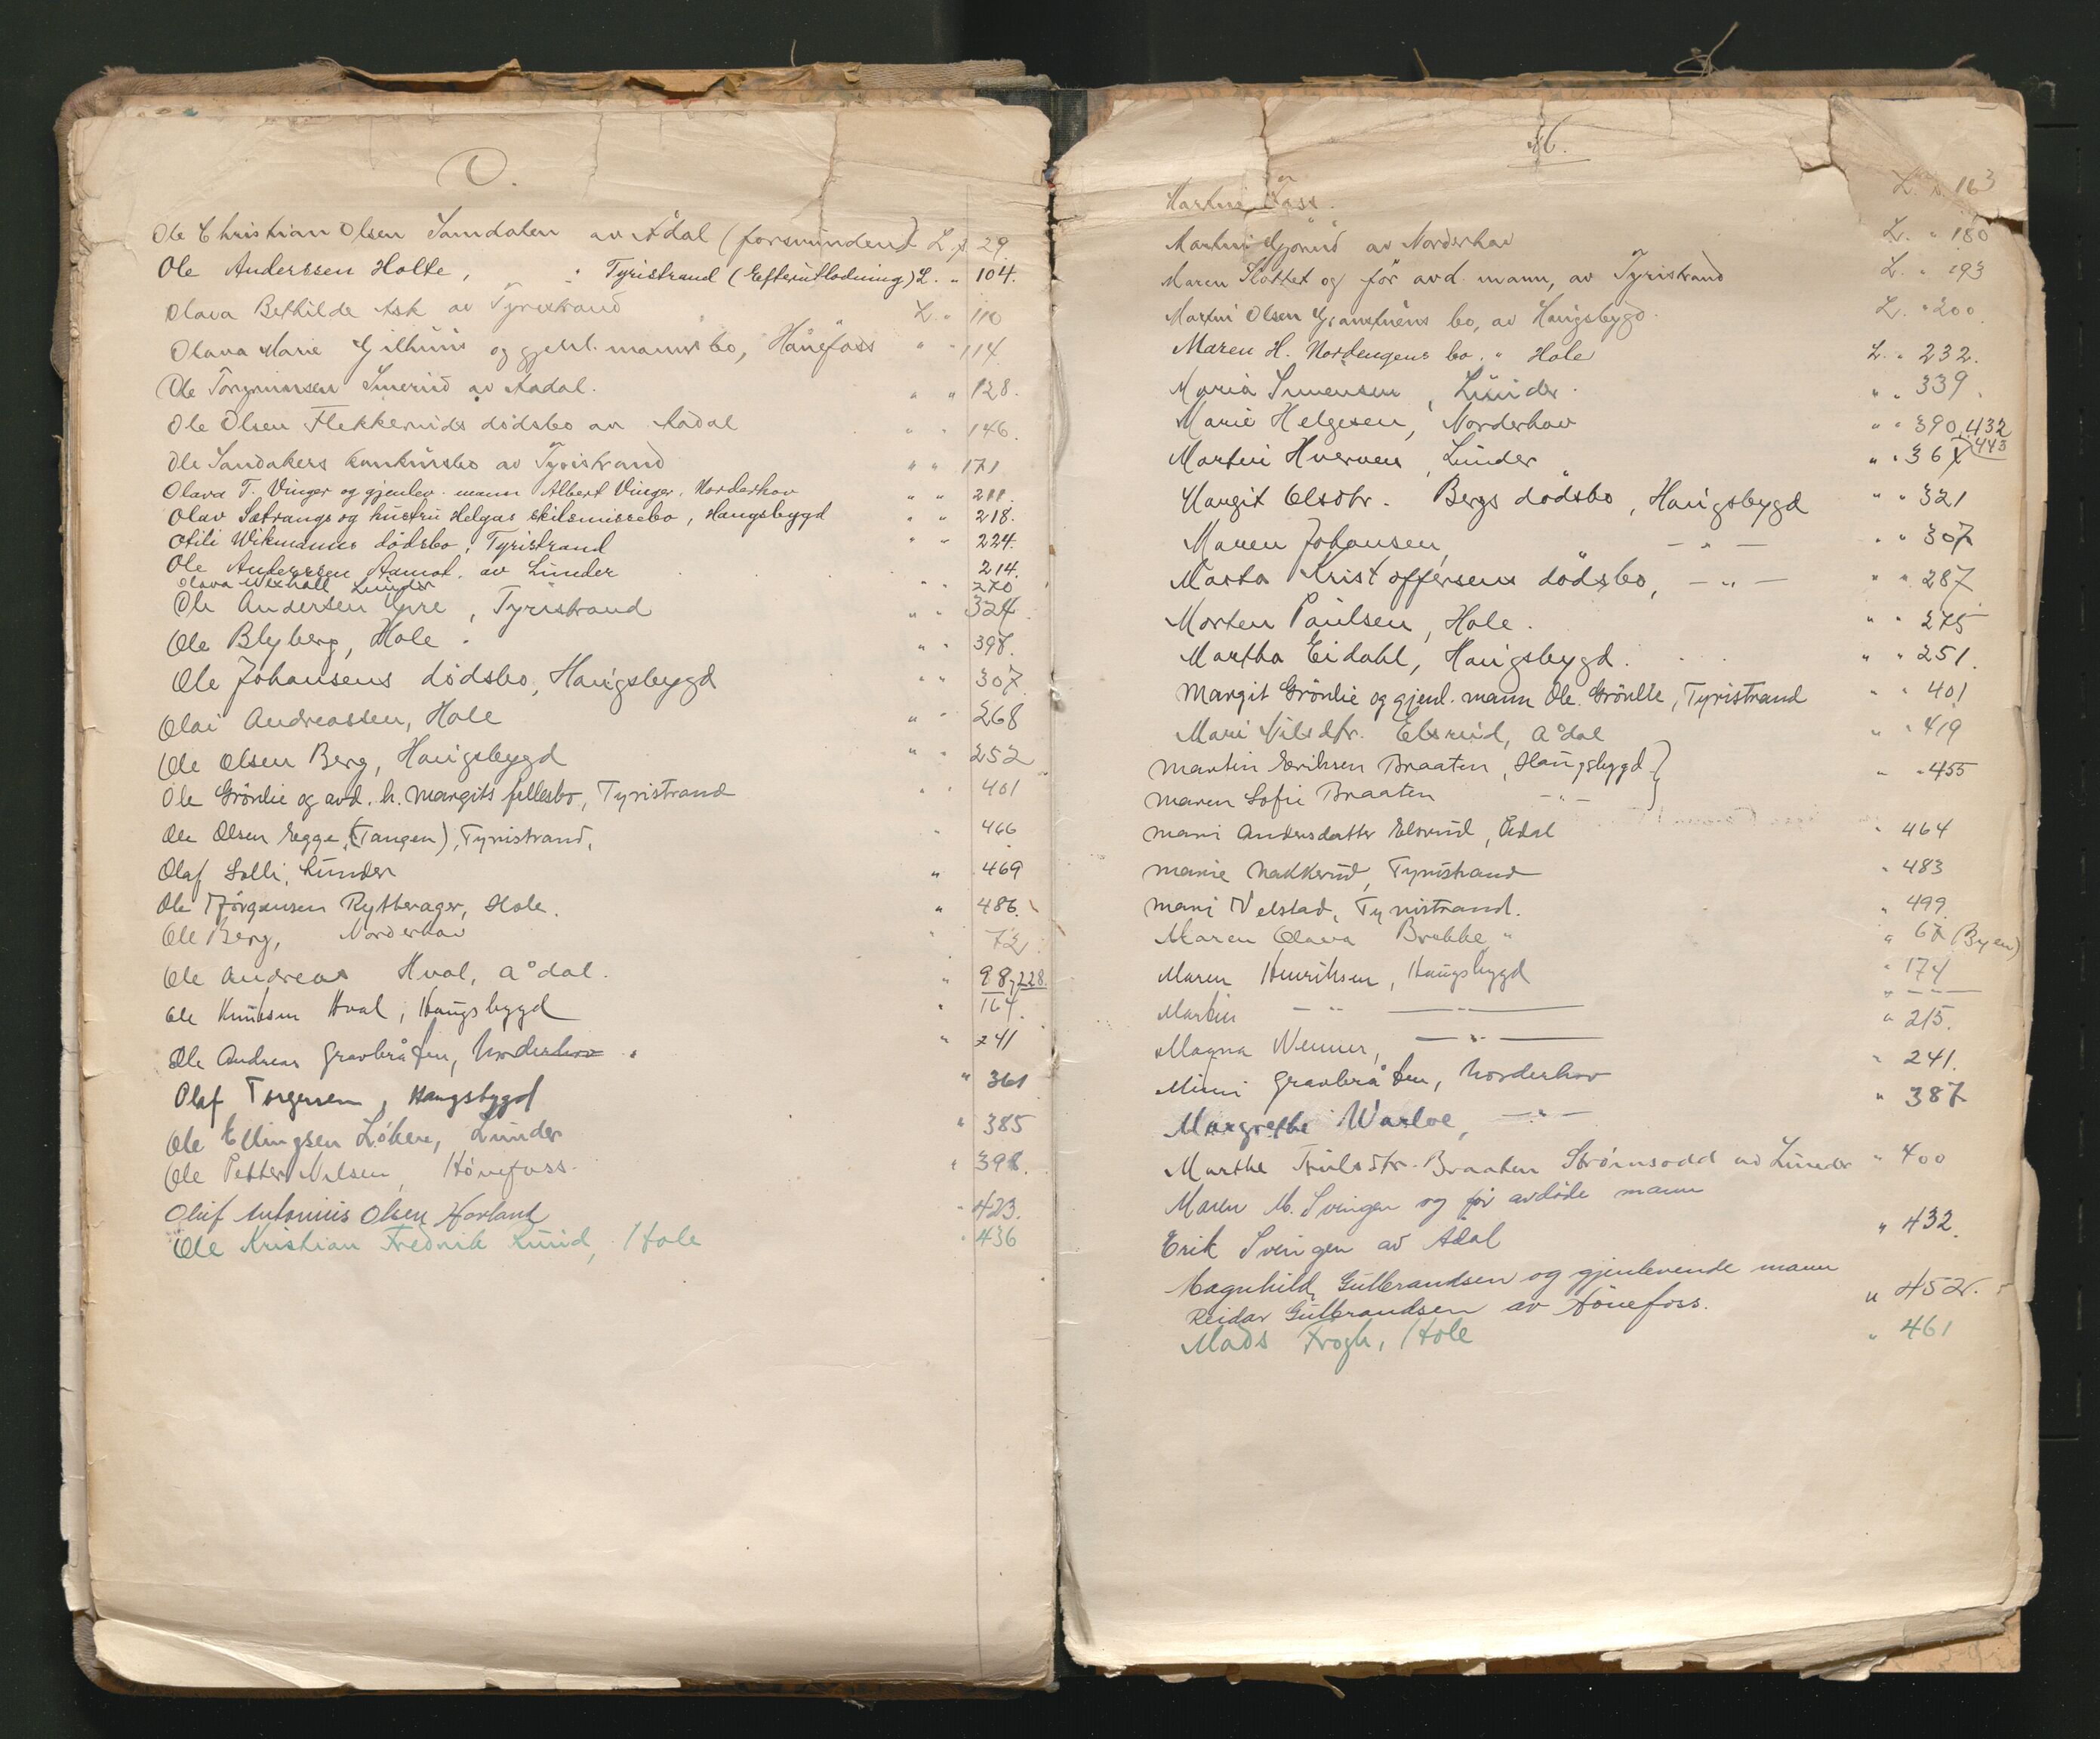 O.
Ole Christian Olsen Samdalen av Ådal (forsvunden) L. p. 29.
Ole Anderssen Holte, " Tyristrand (Efterutlodning) L. " 104.
Olava Bethilde Ask av Tyristrand L. " 110
Olava Marie Gilhuus og gjenl. mannsbo, Hønefoss " " 114
Ole Torgrimsen Smerud av Aadal. " " 128.
Ole Olsen Flekkeruds dødsbo av Aadal " " 146.
Ole Sandakers konkursbo av Tyristrand " " 171
Olava T. Vinger og gjenlev. mann Albert Vinger, Norderhov " " 211.
Olav Sætrangs og hustru Helgas skilsmissebo, Haugsbygd " " 218.
Otili Wikmanns dødsbo, Tyristrand " " 224.
Ole Anderssen Aamot. av Lunder 214.
Olava Wexhall Lunder " " 270
Ole Andersen Gyre, Tyristrand " " 324
Ole Blyberg, Hole. " " 398.
Ole Johansens dødsbo, Haugsbygd " " 307
Olai Andreassen, Hole " " 268
Ole Olsen Berg, Haugsbygd " " 252
Ole Grönlie og avd. h. Margits fellesbo, Tyristrand " " 401
Ole Olsen Egge, (Tangen), Tyristrand, " 466
Olaf Solli, Lunder " 469
Ole Jörgensen Rytterager, Hole. " 486.
Ole Berg, Norderhov " 72
Ole Andreas Hval, Ådal. " 98, 228.
Ole Knutsen Hval, Haugsbygd " 164.
Ole Andreas Gravbråten, Norderhov. " 241
Olaf Torgersen, Haugsbygd " 361
Ole Ellingsen Løken, Lunder " 385
Ole Petter Nilsen, Hønefoss. " 398.
Oluf Antonius Olsen Horland " 423.
Ole Kristian Fredrik Lund, Hole " 436
M.
Martin Aass. L. p. 163
Martin Gjörud av Norderhov L. " 180
Maren Slottet og för avd. mann, av Tyristrand L. " 193
Martin Olsen Granstuens bo, av Haugsbygd. L. " 200
Maren H. Nordengens bo. " Hole L. " 232.
Maria Simensen, Lunder. " " 339.
Marie Helgesen, Norderhov " " 390, 432
443
Martin Hverven, Lunder " " 367
Margit Olsdtr. Bergs dødsbo, Haugsbygd " " 321
Maren Johansen, — " — " " 307
Marta Kristoffersens dödsbo, — " — " " 287
Morten Paulsen, Hole. " " 275
Martha Eidahl, Haugsbygd. " " 251.
Margit Grönlie og gjenl. mann Ole Grönlie, Tyristrand " " 401
Mari Nilsdtr. Elsrud, Ådal " " 419
Martin Eriksen Braaten, Haugsbygd } " " 455
Maren Sofie Braaten — " —
Mari Andersdatter Elsrud, Ådal " 464
Marie Nakkerud, Tyristrand " 483
Mari Velstad, Tyristrand. " 499
Maren Olava Brekke " " 67 (Byen)
Maren Henriksen, Haugsbygd " 174
Martin — " — — " — " — " —
Magna Wenner, — " — " 215.
Mimi Gravbråten, Norderhov " 241.
Margrethe Warloe, — " — " 387
Marthe Trulsdtr. Braaten Strömsodd av Lunder " 400
Maren M. Svingen og før avdøde mann
Erik Svingen av Ådal " 432.
Magnhild Gulbrandsen og gjenlevende mann
Reidar Gulbrandsen av Hønefoss. " 452.
Mads Frogh, Hole " 461